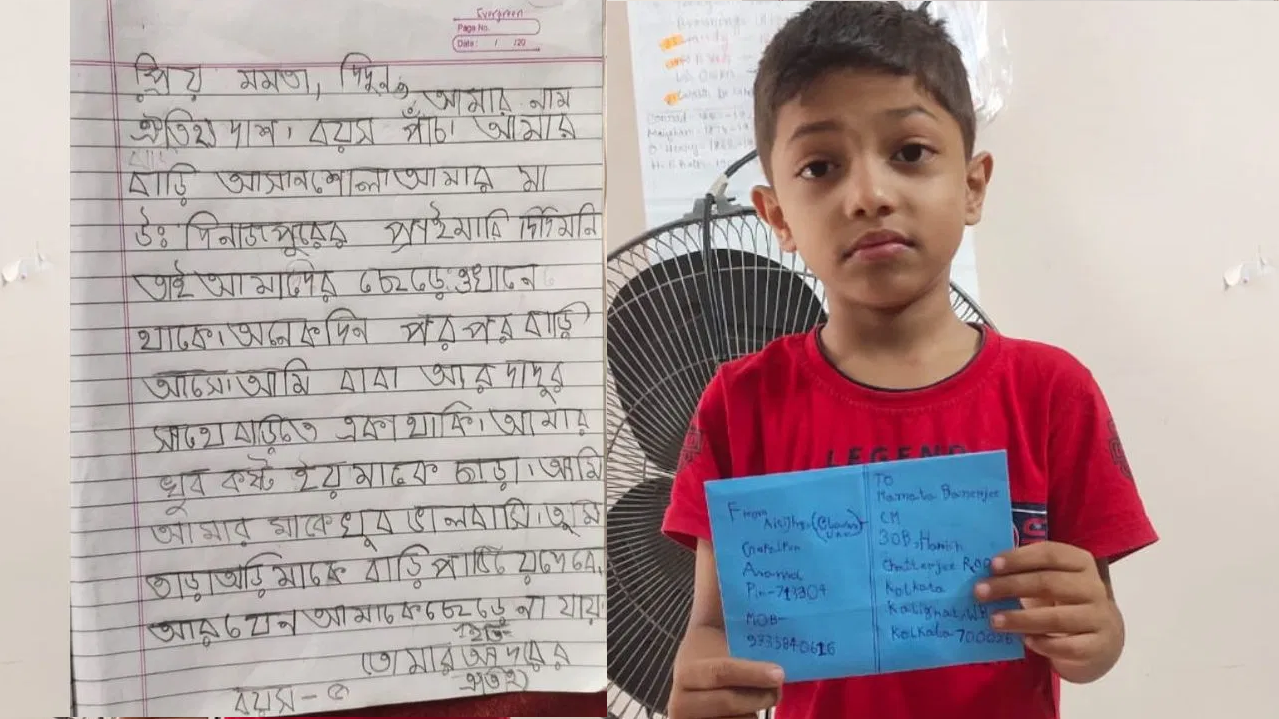 Evergreen
Page No.
Date: / /20
প্রিয় মমতা, দিদুন,
আমার নাম
ঐতিহ্য দাশ। বয়স পাঁচ। আমার
বাড়ি আসানশোল। আমার মা
উঃ দিনাজপুরের প্রাইমারি দিদিমনি
তাই আমাদের ছেড়ে ওখানে
থাকে। অনেক দিন পর পর বাড়ী
আসে। আমি বাবা আর দাদুর
সাথে বাড়িতে একা থাকি। আমার
খুব কষ্ট হয় মাকে ছাড়া। আমি
আমার মাকে খুব ভালবাসি। তুমি
তাড়াতাড়ি মাকে বাড়ি পাঠিয়ে দেবে,
আর যেন আমাকে ছেড়ে না যায়
ইতি
তোমার আদরের
ঐতিহ্য
বয়স - ৫
LEGEND
From
Gopalpur
Pin-713304
MOB-
9333840616
TO
Mamata Banerjee
CM
30B, Harish
Chatterjee
Kolkata
Kalighat, WB
Kolkata 7000